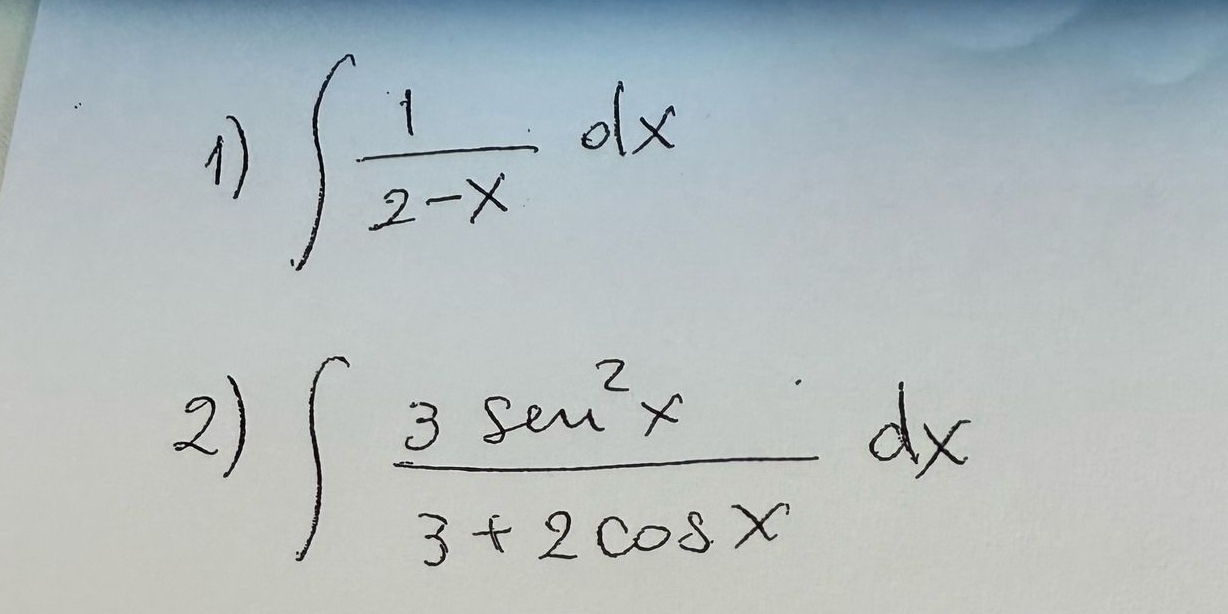 1) ∫ 1/(2-x) dx
2) ∫ (3 sen²x)/(3+2cosx) dx